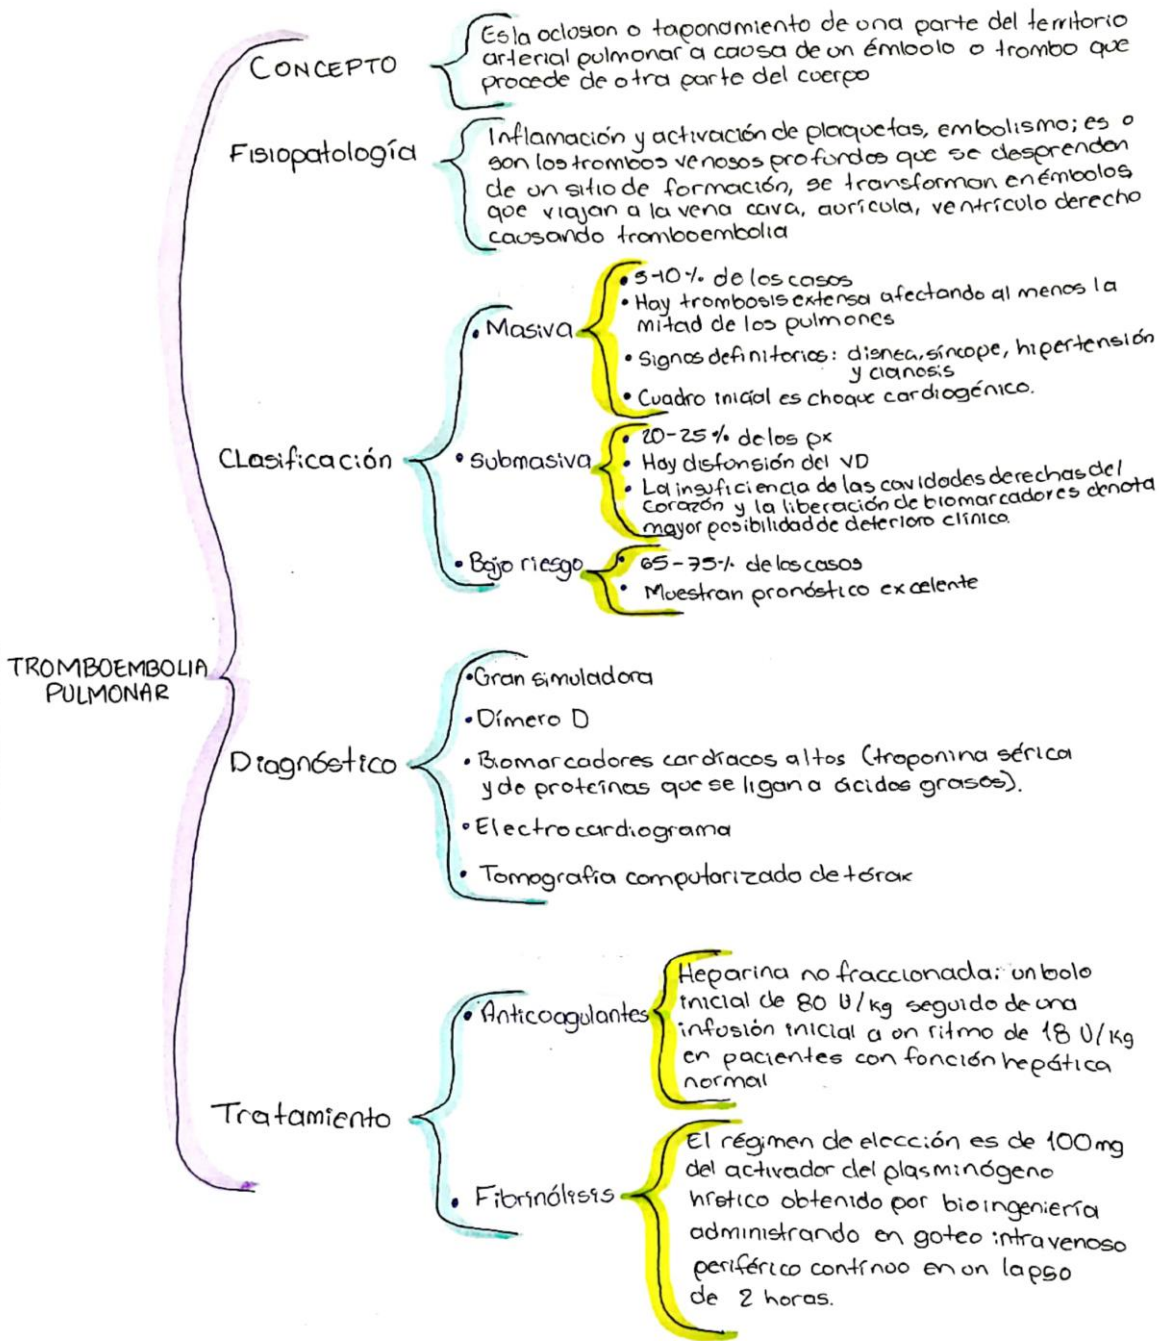 TROMBOEMBOLIA
PULMONAR
CONCEPTO
Es la oclusion o taponamiento de una parte del territorio
arterial pulmonar a causa de un émbolo o trombo que
procede de otra parte del cuerpo
Fisiopatología
Inflamación y activación de plaquetas, embolismo; es o
son los trombos venosos profundos que se desprenden
de un sitio de formación, se transforman en émbolos
que viajan a la vena cava, aurícula, ventrículo derecho
causando tromboembolia
Clasificación
• Masiva
• 5-10% de los casos
• Hay trombosis extensa afectando al menos la
mitad de los pulmones
• Signos definitorios: disnea, síncope, hipertensión
y cianosis
• Cuadro inicial es choque cardiogénico.
• Submasiva
• 20-25% de los px
• Hay disfunsión del VD
• La insuficiencia de las cavidades derechas del
corazón y la liberación de biomarcadores denota
mayor posibilidad de deterioro clínico.
• Bajo riesgo
• 65-75% de los casos
• Muestran pronóstico excelente
Diagnóstico
• Gran simuladora
• Dímero D
• Biomarcadores cardíacos altos (troponina sérica
y de proteínas que se ligan a ácidos grasos).
• Electrocardiograma
• Tomografía computarizado de tórax
Tratamiento
• Anticoagulantes
Heparina no fraccionada: un bolo
inicial de 80 U/kg seguido de una
infusión inicial a un ritmo de 18 U/Kg
en pacientes con función hepática
normal
• Fibrinólisis
El régimen de elección es de 100mg
del activador del plasminógeno
hístico obtenido por bioingeniería
administrando en goteo intravenoso
periférico continuo en un lapso
de 2 horas.